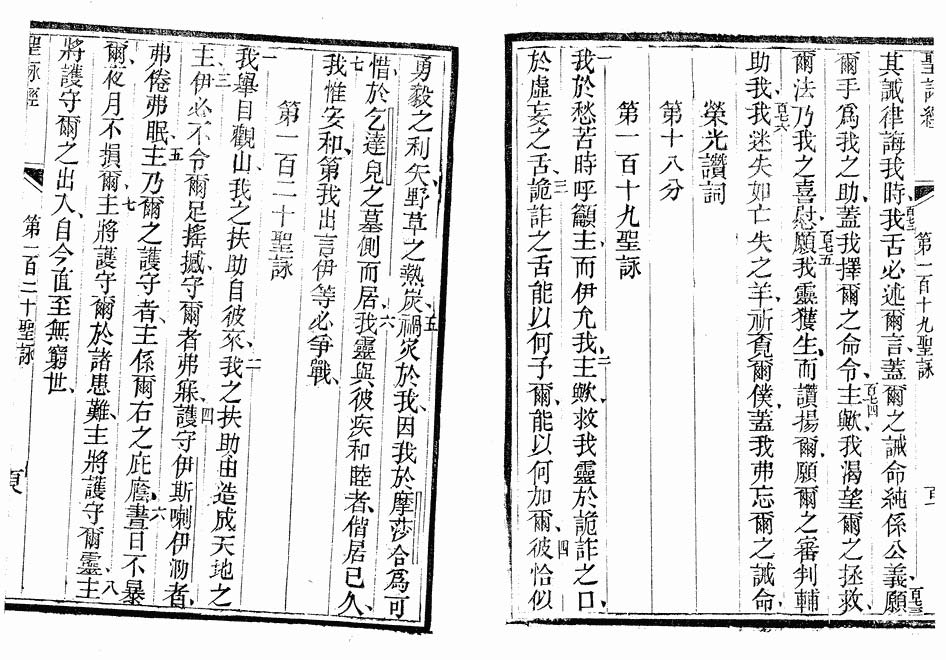 聖詠經
第一百十九聖詠
其誡律誨我時、我舌必述爾言、蓋爾之誡命純係公義、願
百七三
爾手爲我之助、蓋我擇爾之命令、主歟我渴望爾之拯救、
百七四
爾法乃我之喜慰、願我靈獲生、而讚揚爾、願爾之審判輔
百七五
助我、我迷失如亡失之羊、祈覓爾僕、蓋我弗忘爾之誡命、
百七六
榮光讚詞
第十八分
第一百十九聖詠
一
我於愁苦時呼籲主、而伊允我、主歟救我靈於詭詐之口、
二
於虛妄之舌、詭詐之舌能以何予爾、能以何加爾、彼恰似
三
四
勇毅之利矢、野草之熱炭、禍災於我、因我於摩莎合爲可
五
惜、於乞達兒之墓側而居、我靈與彼疾和睦者、偕居已久、
六
七
我惟安和、第我出言、伊等必爭戰、
第一百二十聖詠
一
我舉目觀山、我之扶助自彼來、我之扶助由造成天地之
二
主、伊必不令爾足搖撼、守爾者弗寐、護守伊斯喇伊泐者、
三
四
弗倦弗眠、主乃爾之護守者、主係爾右之庇廕、晝日不暴
五
六
爾、夜月不損爾、主將護守爾於諸患難、主將護守爾靈、主
七
八
將護守爾之出入、自今直至無窮世、
聖詠經
第一百二十聖詠